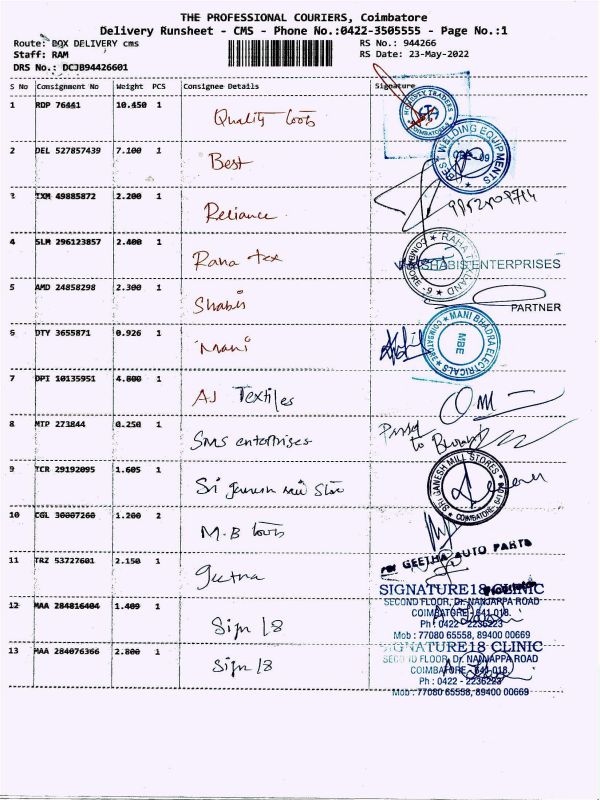 THE PROFESSIONAL COURIERS, Coimbatore
Delivery Runsheet - CMS - Phone No.:0422-3505555 - Page No.:1
Route: BOX DELIVERY cms RS No.: 944266
Staff: RAM RS Date: 23-May-2022
DRS No.: DCJB94426601
S No Consignment No Weight PCS Consignee Details Signature
1 RDP 76441 10.450 1 Quality Tools
HIGHKEY TRADERS COIMBATORE
2 DEL 527857439 7.100 1 Best
BEST WELDING EQUIPMENTS
3 TXM 49885872 2.200 1 Reliance
4 SLM 296123857 2.400 1 Rana tex
SHABIS ENTERPRISES
5 AMD 24858298 2.300 1 Shabis
PARTNER
6 DTY 3655871 0.926 1 Mani
MANI BHADRA ELECTRICALS COIMBATORE MBE
7 DPI 10135951 4.800 1 AJ Textiles
8 MTP 273844 0.250 1 SMS enterprises
9 TCR 29192095 1.605 1 Sri Ganesh mill Store
SHI GANESH MILL STORES COIMBATORE
10 CGL 30007260 1.200 2 M.B tools
For GEETHA AUTO PARTS
11 TRZ 53727601 2.150 1 geetha
SIGNATURE18 CLINIC
12 MAA 284816404 1.409 1 Sign 18
SECOND FLOOR, Dr. NANJAPPA ROAD
COIMBATORE - 641-018.
Ph : 0422 - 2236223
Mob : 77080 65558, 89400 00669
13 MAA 284076366 2.800 1 Sign 18
SIGNATURE18 CLINIC
SECOND FLOOR, Dr. NANJAPPA ROAD
COIMBATORE - 641-018.
Ph : 0422 - 2236223
Mob : 77080 65558, 89400 00669